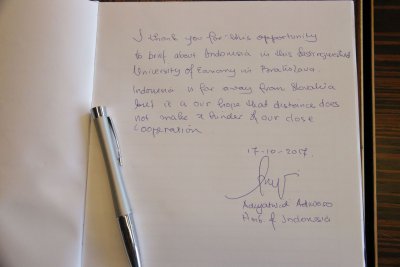 I thank you for this opportunity
to brief about Indonesia in this distinguished
University of Economy in Bratislava
Indonesia is far away from Slovakia
but it is a our hope that distance does
not make a hinder of our close
cooperation
17-10-2017.
Adiyatwidi Adiwoso
Amb. of Indonesia